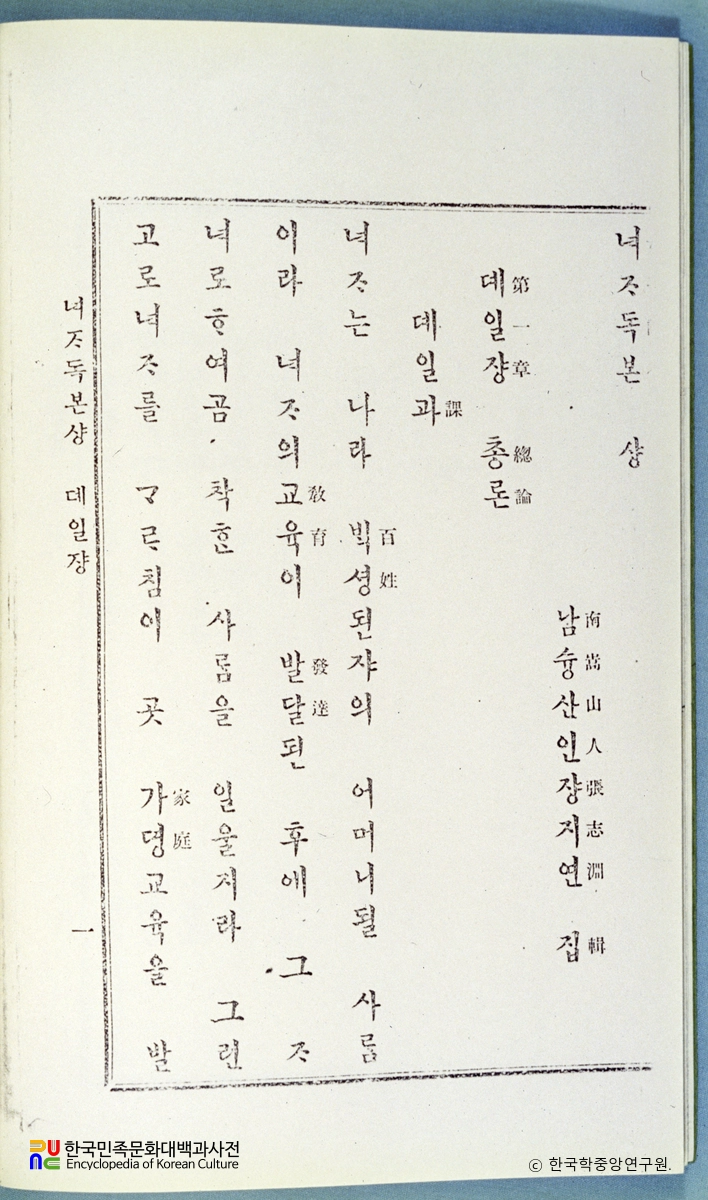 녀ᄌᆞ독본 샹
南嵩山人張志淵 輯
남슝산인쟝지연 집
第一章 總論
뎨일쟝 총론
課
뎨일과
百姓
녀ᄌᆞ는 나라 ᄇᆡᆨ셩된쟈의 어머니될 사ᄅᆞᆷ
敎育 發達
이라 녀ᄌᆞ의교육이 발달된 후에 그 ᄌᆞ
녀로ᄒᆞ여곰 착ᄒᆞᆫ 사ᄅᆞᆷ을 일울지라 그런
家庭
고로녀ᄌᆞ를 ᄀᆞᄅᆞ침이 곳 가뎡교육을 발
녀ᄌᆞ독본샹 뎨일쟝 一
한국민족문화대백과사전
Encyclopedia of Korean Culture
© 한국학중앙연구원.